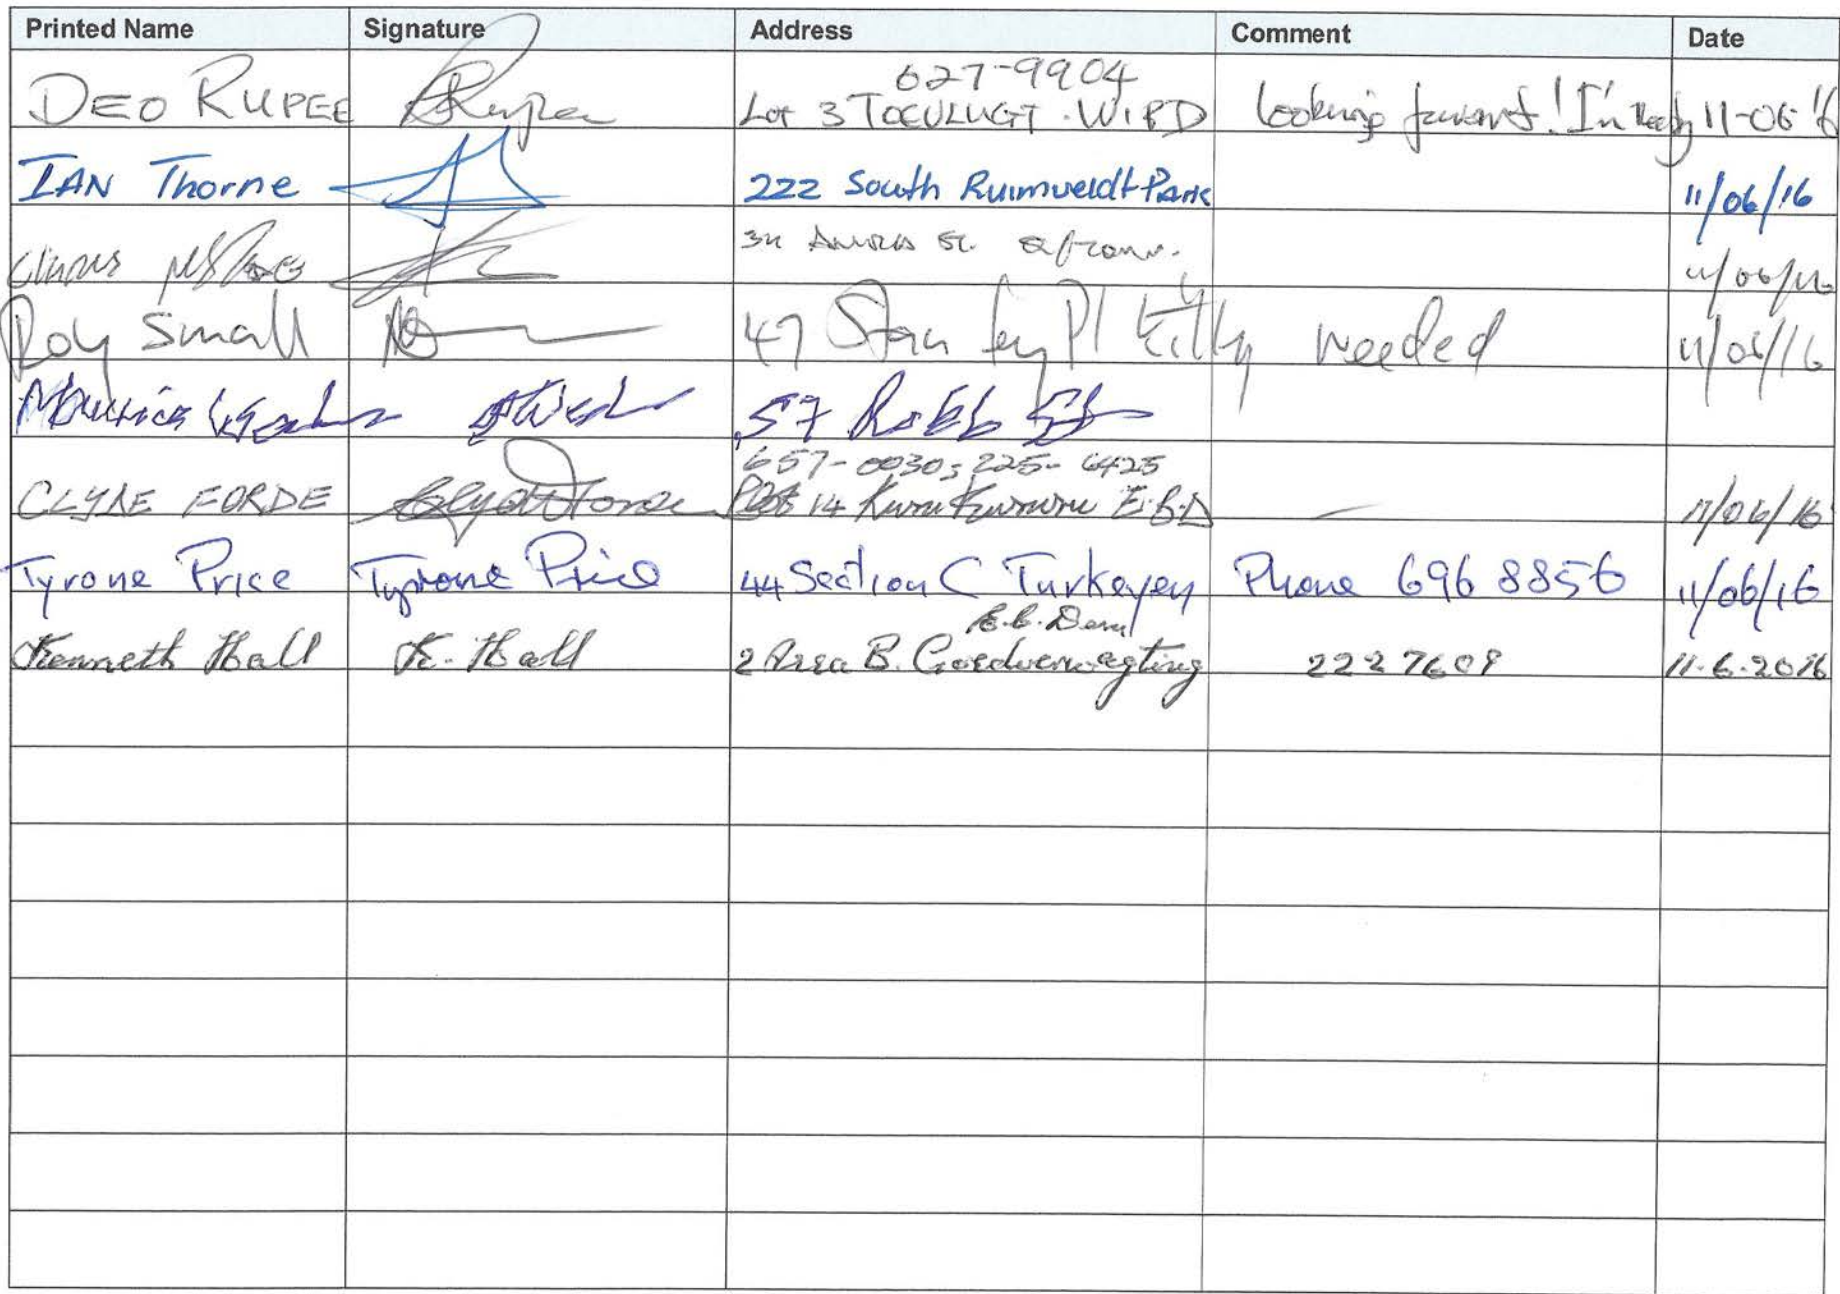 Printed Name Signature Address Comment Date
627-9904
DEO RUPEE Lot 3 W.B.D Looking forward! I'm ready 11-06-16
IAN Thorne 222 South Ruimveldt Park 11/06/16
34 St. 11/06/16
Roy Small 47 Stanley Pl Kitty needed 11/06/16
Maurice 57 Robb St
657-0030; 225-6425
CLYDE FORDE Clyde Forde 14 Kuru Kururu E.B.D — 11/06/16
Tyrone Price Tyrone Price 44 Section C Turkeyen Phone 696 8856 11/06/16
E.C. Dem
Kenneth Hall K. Hall 2 Area B. Goedverwagting 222 7609 11.6.2016